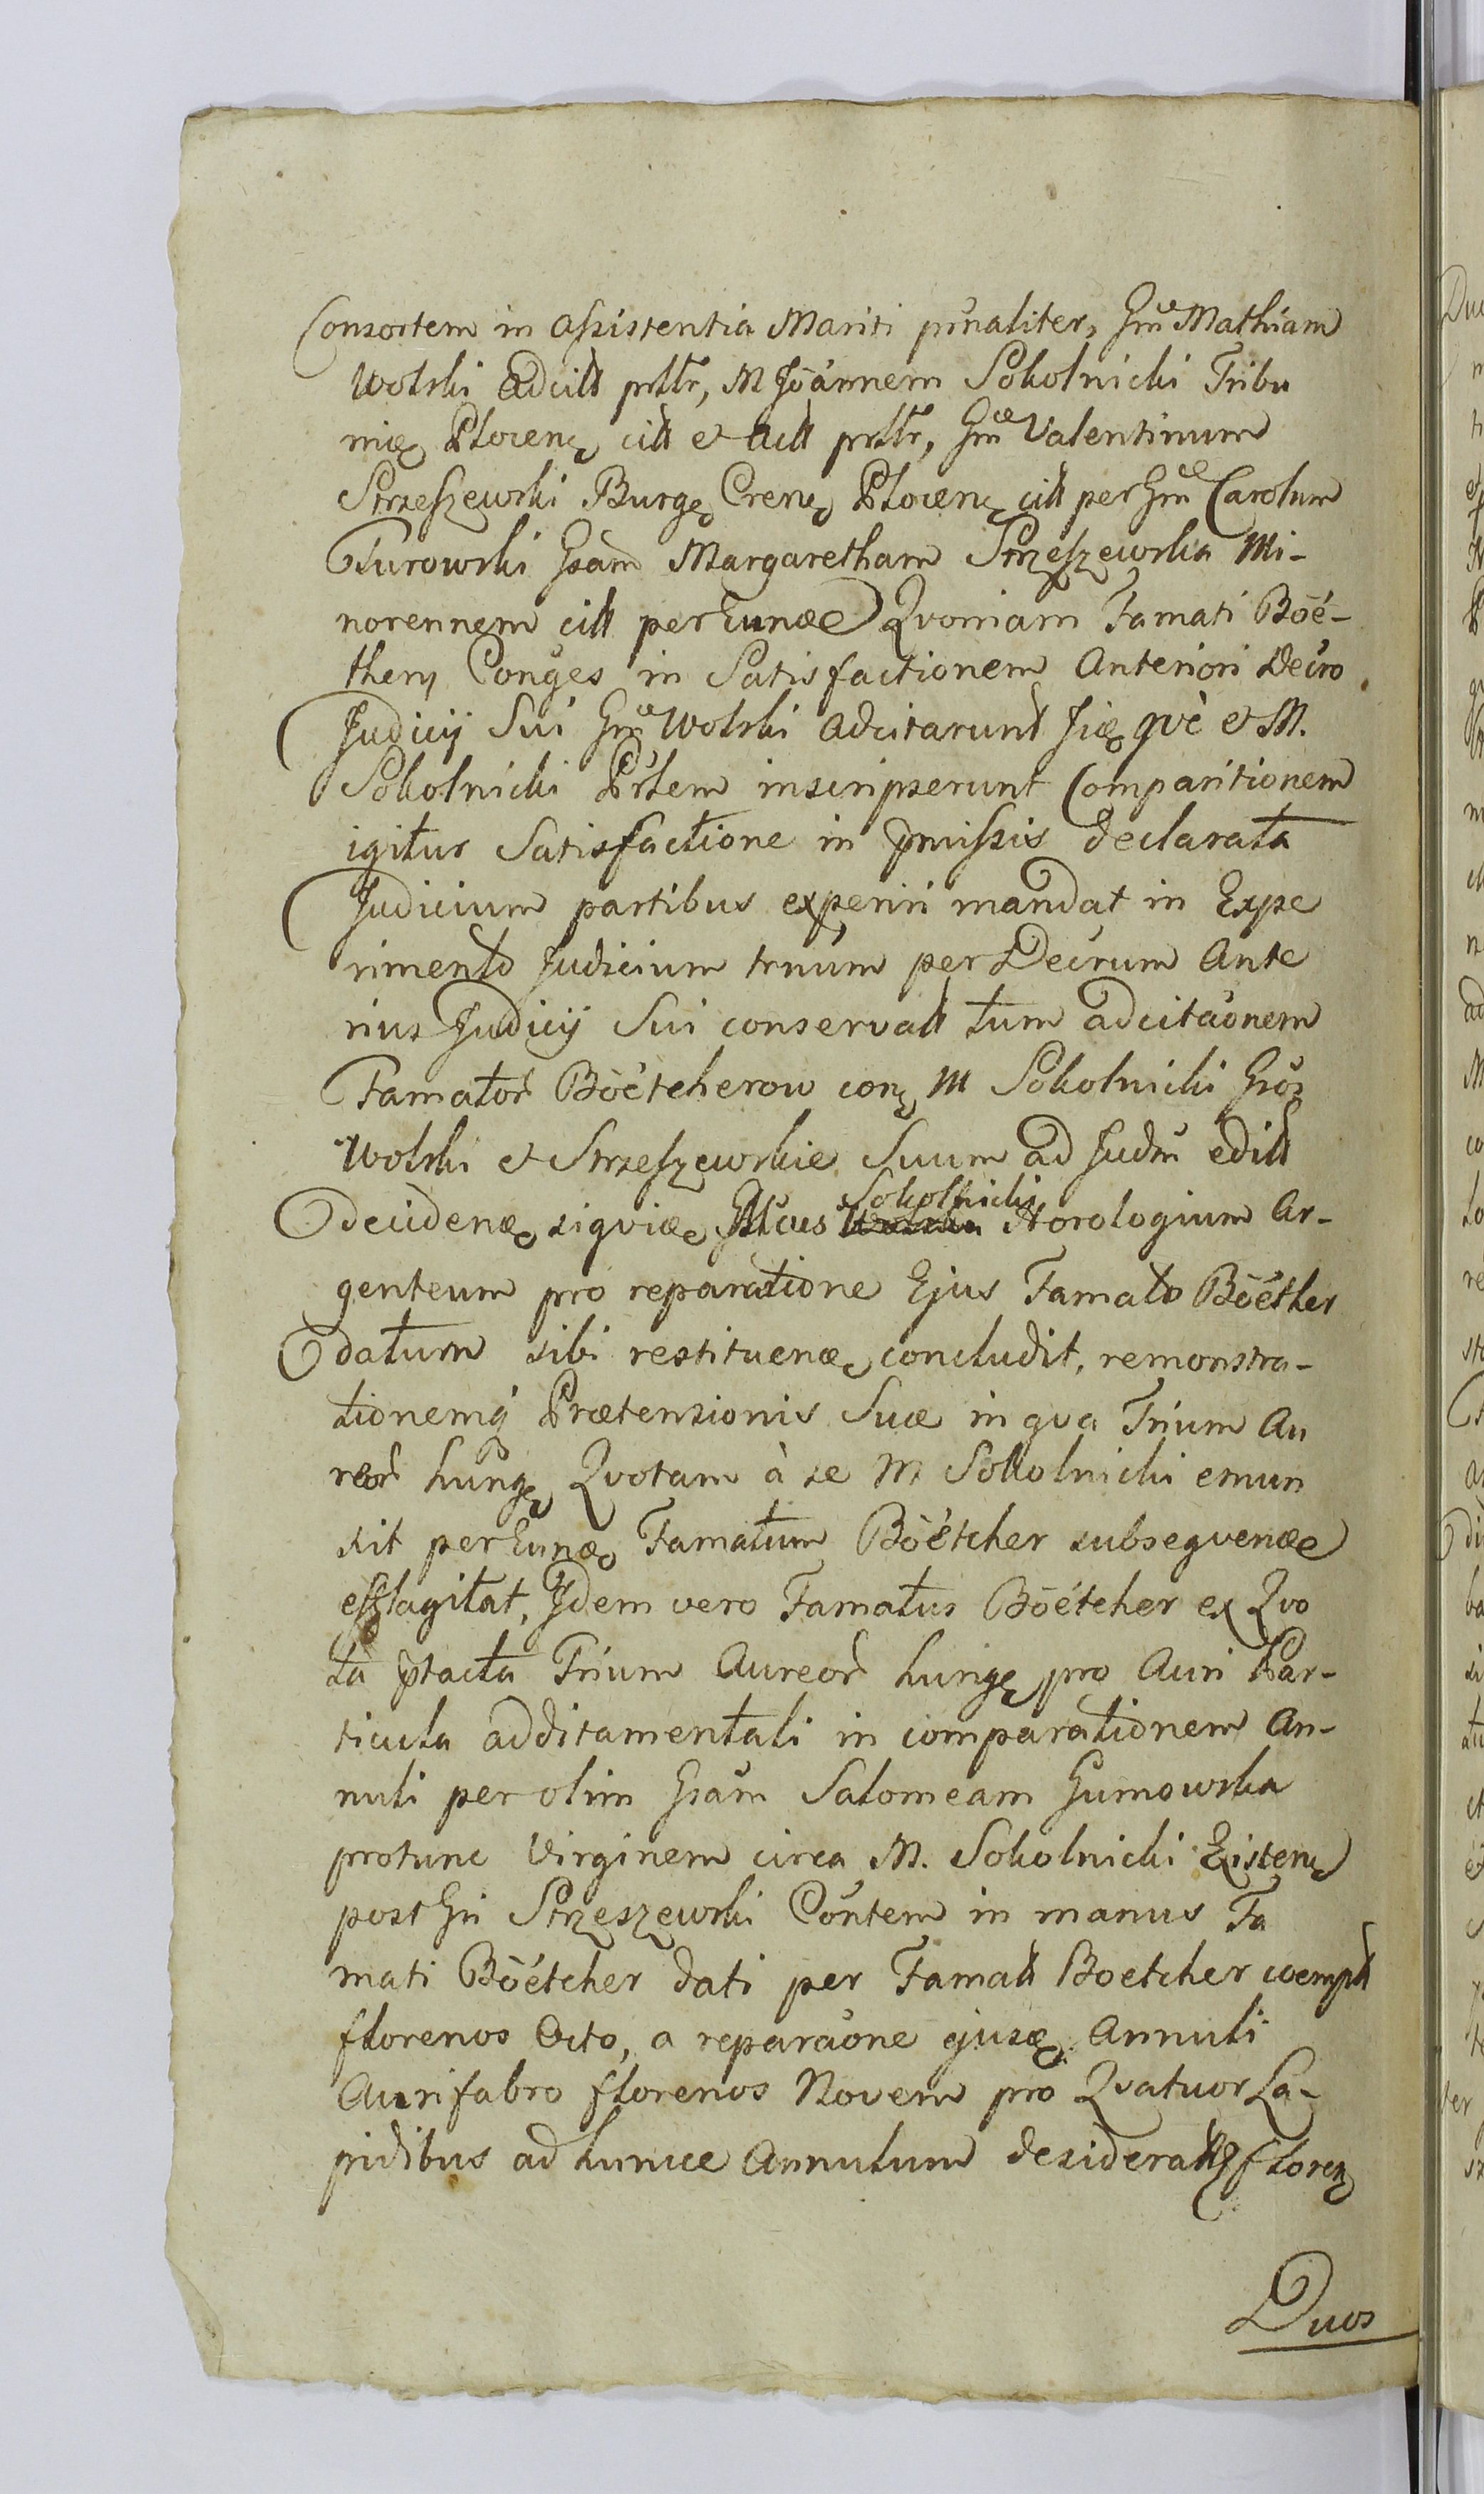 Consortem in assistentia Mariti prnaliter, Gm Mathiam
Wolski Adcitt prltr, M Joannem Sokolnicki Tribu
niæ Plocenę citt et Actt prltr, Gm Valentinum
Strzeszewski Burgę Crenę Plocenę citt per Gm Carolum
Turowski Gsam Margaretham Strzeszewska Mi-
norennem citt per Eunæ Qvoniam Famati Böé-
thery Conges in Satisfactionem Anteriori Decro
Judicij Sui Gm Wolski Adcitarunt qvè et M.
Sokolnicki Prtem inscripserunt Comparitionem
igitur Satisfactione in pmissis declarata
Judicium partibus experiri mandat in Expe
rimento Judicium trnum per Decrum Ante
rius Judicij Sui conservatt tum adcitaonem
Famator Böétcherow conę M Sokolnicki Gros
Wolski et Strzeszewskie Suum ad Judm editt
decidenæ sigviæ Sokolnicki Horologium Ar-
genteum pro reparatione Ejus Famato Böéther
datum sibi restituenæ concludit, remonstra-
tionemq Prætensionis Suæ in qva Trium Au
reor hungę Qvotam à se M Sokolnicki emun
xit per Eunæ Famatum Böétcher subseqvenæ
efflagitat, Jdem vero Famatus Böétcher ex Qvo
ta ptacta Trium Aureor hungę pro Auri Par-
ticula additamentali in comparationem An-
nuli per olim Gsam Salomeam Gumowska
protunc Virginem circa M. Sokolnicki Existenę
post Gn Strzeszewski Contem in manus Fa
mati Böétcher dati per Famatt Boetcher coempt
florenos Octo, a reparaone ejusę Annuli
Aurifabro florenos Novem pro Qvatuor La-
pidibus ad huncce Annulum desideratt florenę
Duos